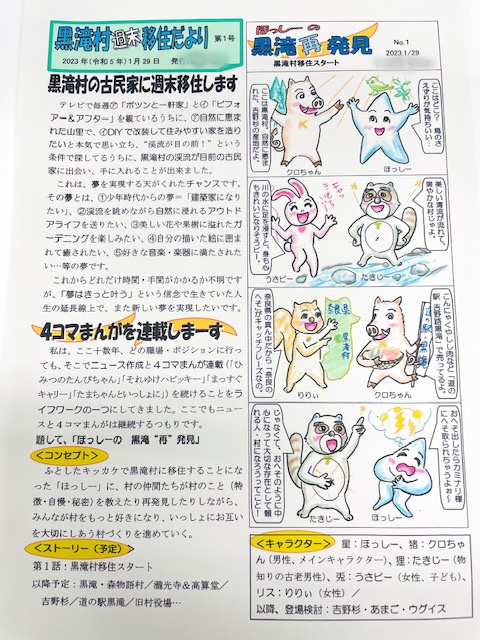 黒滝村週末移住だより 第1号
2023年(令和5年)1月29日 発行
黒滝村の古民家に週末移住します
テレビで毎週㋐「ポツンと一軒家」と㋑「ビフォ
アー＆アフター」を観ているうちに、㋐自然に恵ま
れた山里で、㋑DIYで改装して住みやすい家を造り
たいと本気で思い立ち、“渓流が目の前！”という
条件で探してるうちに、黒滝村の渓流が目前の古民
家に出会い、手に入れることが出来ました。
これは、夢を実現する天がくれたチャンスです。
その夢とは、①少年時代からの夢＝「建築家になり
たい」、②渓流を眺めながら自然に浸れるアウトド
アライフを送りたい、③美しい花や果樹に溢れたガ
ーデニングを楽しみたい、④自分の描いた絵に囲ま
れて癒されたい、⑤好きな音楽・楽器に満たされた
い…等の夢です。
これからどれだけ時間・手間がかかるか不明です
が、「夢はきっと叶う」という信念で生きていた人
生の延長線上で、また新しい夢を実現したいです。
4コマまんがを連載しまーす
私は、ここ十数年、どの職場・ポジションに行っ
ても、そこでニュース作成と４コマまんが連載(「ひ
みつのたんぴちゃん」「それゆけハピッキー」「まっすぐ
キャリー」「たまちゃんといっしょに」)を続けることをラ
イフワークの一つにしてきました。ここでもニュー
スと４コマまんがは継続するつもりです。
題して、「ほっしーの 黒滝“再”発見」
＜コンセプト＞
ふとしたキッカケで黒滝村に移住することにな
った「ほっしー」に、村の仲間たちが村のこと(特
徴・自慢・秘密)を教えたり再発見したりしながら、
みんなが村をもっと好きになり、いっしょにお互い
を大切にしあう村づくりを進めていく。
＜ストーリー(予定)
第１話：黒滝村移住スタート
以降予定：黒滝・森物語村／瀧光寺＆高算堂／
吉野杉／道の駅黒滝／旧村役場…
ほっしーの
黒滝再発見
黒滝村移住スタート
No.1
2023.1/29
ここはどこ？ 鳥のさ
えずりが気持ちいい…
ここは黒滝村。自然に恵ま
れた、吉野杉の産地だよ。
クロちゃん
ほっしー
美しい清流が流れて、
爽やかな村じゃよ。
川の水に足を浸すと、身も心
もきれいになりそうピー。
うさピー
たきじー
こんにゃくやしし肉などは「道の
駅 吉野路黒滝」で売ってるよ。
道の駅 黒滝
奈良県の真ん中だから「奈良の
へそ」がキャッチフレーズなの。
奈良県
黒滝村
りりぃ
クロちゃん
おへそ出したらカミナリ様
にへそ取られちゃうよぉ～
じゃなくて、おへそのように中
心になって大切な存在として頼
れる人・村になろうってこと！
たきじー
ほっしー
＜キャラクター＞ 星：ほっしー、猪：クロちゃ
ん(男性、メインキャラクター)、狸：たきじー(物
知りの古老男性)、兎：うさピー(女性、子ども)、
リス：りりぃ(女性)／
以降、登場検討：吉野杉・あまご・ウグイス